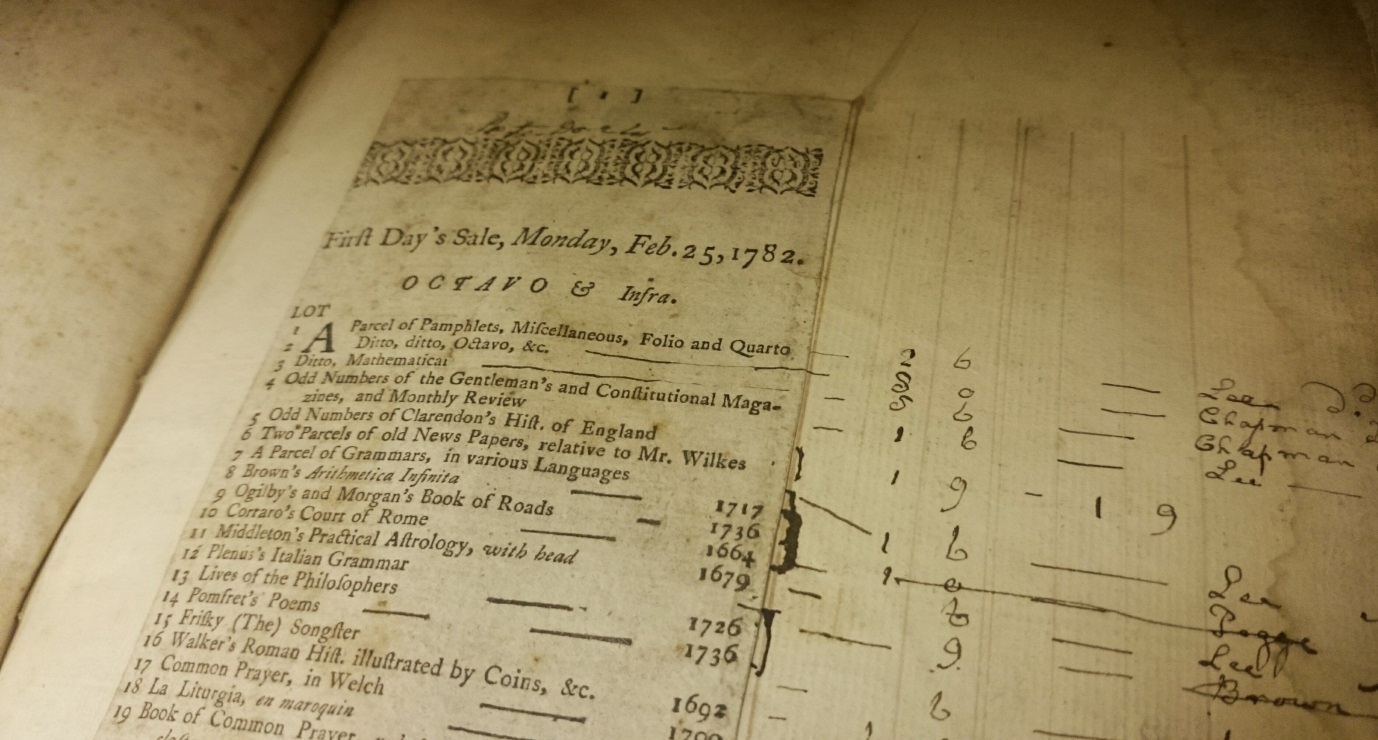 [ 1 ]
First Day's Sale, Monday, Feb. 25, 1782.
OCTAVO & Infra.
LOT
1 A Parcel of Pamphlets, Miſcellaneous, Folio and Quarto
2 Ditto, ditto, Octavo, &c.
3 Ditto, Mathematical
4 Odd Numbers of the Gentleman's and Conſtitutional Maga-
zines, and Monthly Review
5 Odd Numbers of Clarendon's Hiſt. of England
6 Two Parcels of old News Papers, relative to Mr. Wilkes
7 A Parcel of Grammars, in various Languages
8 Brown's Arithmetica Infinita — 1717
9 Ogilby's and Morgan's Book of Roads — 1736
10 Corraro's Court of Rome — 1664
11 Middleton's Practical Aſtrology, with head 1679
12 Plenus's Italian Grammar
13 Lives of the Philoſophers —
14 Pomfret's Poems — 1726
15 Friſky (The) Songſter — 1736
16 Walker's Roman Hiſt. illuſtrated by Coins, &c. 1692
17 Common Prayer, in Welch
18 La Liturgia, en maroquin —
19 Book of Common Prayer
6
Lee
Chapman
6
Chapman
1 6
Lee
1 9 - 1 9
1 6
Lee
Pogge
9
Lee
Brown
6